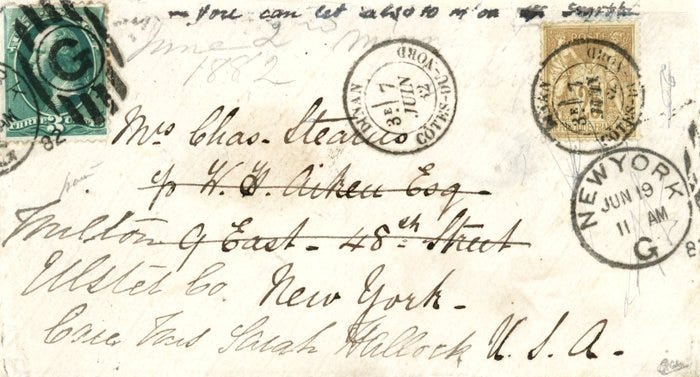 you can let also to on
June 2nd
1882
G
THREE
82
DINAN
3E 7 JUIN 82
COTES-DU-NORD
POSTES
DINAN
3E 7 JUIN 82
COTES-DU-NORD
Mrs Chas. Stearns
W. Aiken Esq
Milton 9 East - 48th Street
Ulster Co. New York.
Care Mrs Sarah Hallock U. S. A.
NEW YORK
JUN 19
11 AM
G